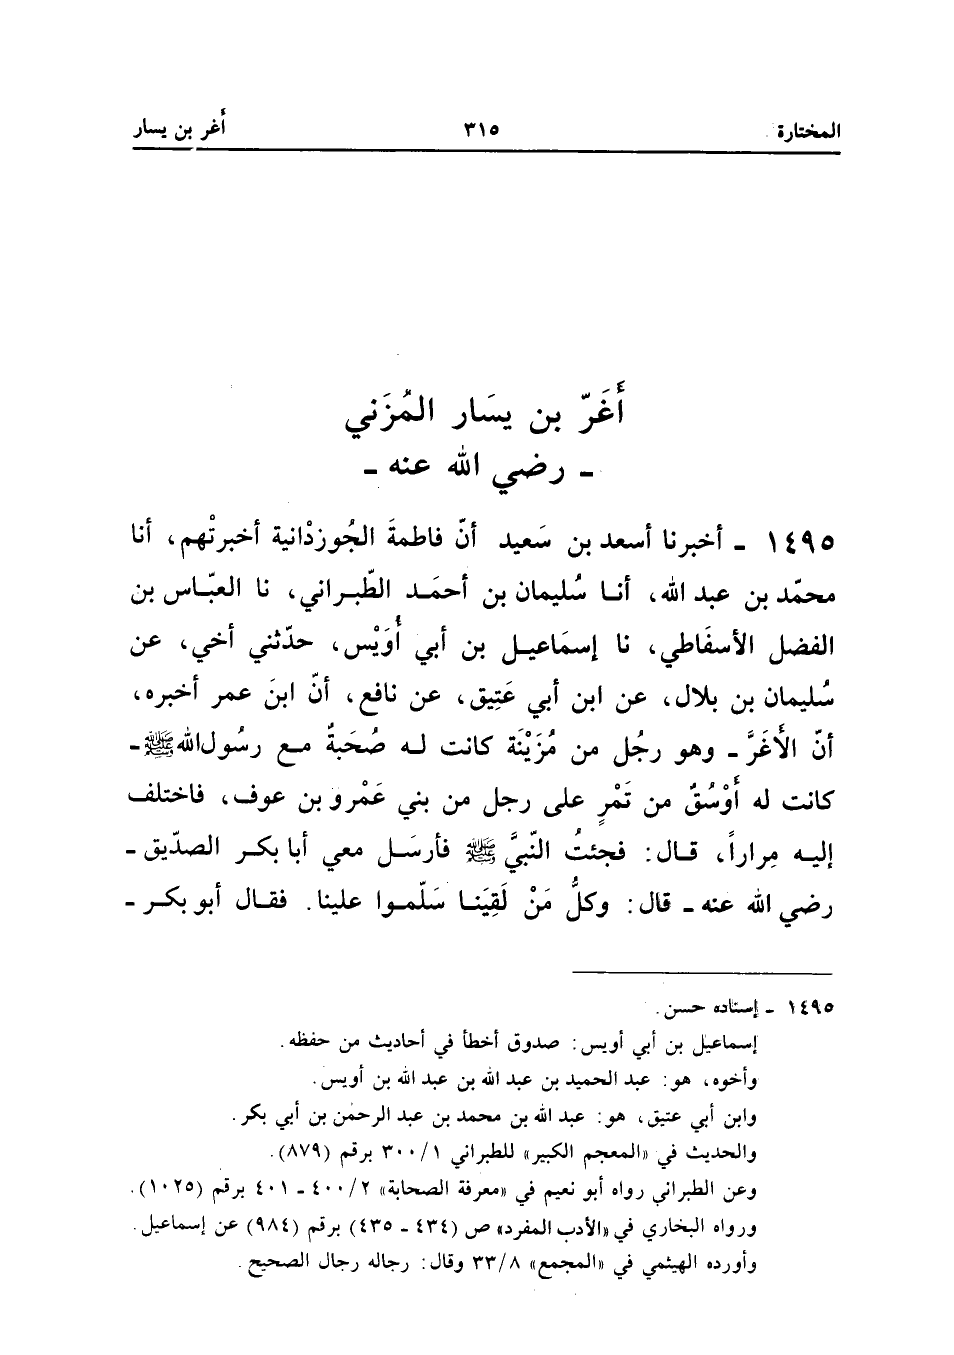 المختارة ٣١٥ أغر بن يسار
أَغَرّ بن يسَار المُزَني
ـ رضي الله عنه ـ
١٤٩٥ ـ أخبرنا أسعد بن سَعيد أنّ فاطمةَ الجُوزدْانية أخبرتْهم، أنا
محمّد بن عبد الله، أنا سُليمان بن أحمَد الطّبراني، نا العبّاس بن
الفضل الأسفَاطي، نا إسمَاعيل بن أبي أُوَيْس، حدّثني أخي، عن
سُليمان بن بلال، عن ابن أبي عَتِيق، عن نافع، أنّ ابنَ عمر أخبره،
أنّ الأَغَرَّ ـ وهو رجُل من مُزَيْنَة كانت له صُحَبةٌ مع رسُول الله ﷺ ـ
كانت له أَوْسُقٌ من تَمْرٍ على رجل من بني عَمْرو بن عوف، فاختلف
إليه مِراراً، قال: فجئتُ النّبيَّ ﷺ فأرسَل معي أبا بكر الصدّيق ـ
رضي الله عنه ـ قال: وكلُّ مَنْ لَقِيَنا سَلّموا علينا. فقال أبو بكر ـ
١٤٩٥ ـ إسناده حسن.
إسماعيل بن أبي أويس: صدوق أخطأ في أحاديث من حفظه.
وأخوه، هو: عبد الحميد بن عبد الله بن عبد الله بن أويس.
وابن أبي عتيق، هو: عبد الله بن محمد بن عبد الرحمٰن بن أبي بكر.
والحديث في «المعجم الكبير» للطبراني ٣٠٠/١ برقم (٨٧٩).
وعن الطبراني رواه أبو نعيم في «معرفة الصحابة» ٤٠٠/٢ ـ ٤٠١ برقم (١٠٢٥).
ورواه البخاري في «الأدب المفرد» ص (٤٣٤ ـ ٤٣٥) برقم (٩٨٤) عن إسماعيل.
وأورده الهيثمي في «المجمع» ٣٣/٨ وقال: رجاله رجال الصحيح.